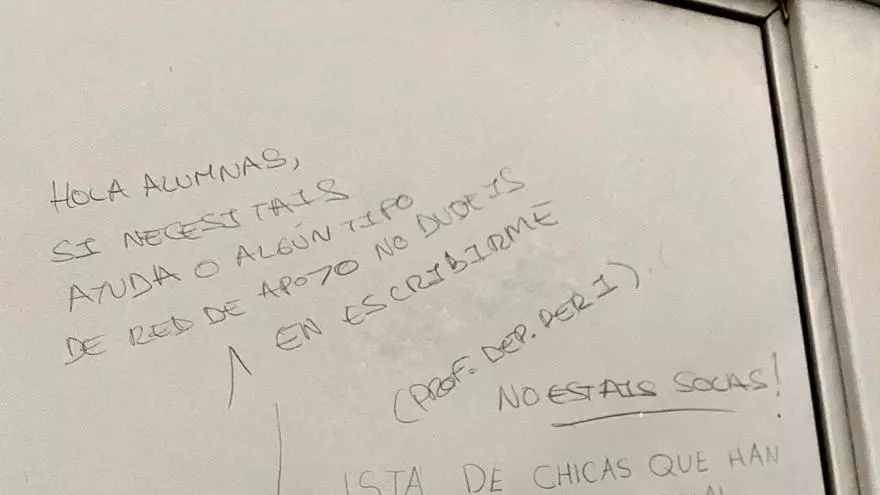 HOLA ALUMNAS,
SI NECESITAIS
AYUDA O ALGÚN TIPO
DE RED DE APOYO NO DUDEIS
EN ESCRIBIRME
(PROF. DEP. DER I).
NO ESTAIS SOLAS!
ISTA DE CHICAS QUE HAN